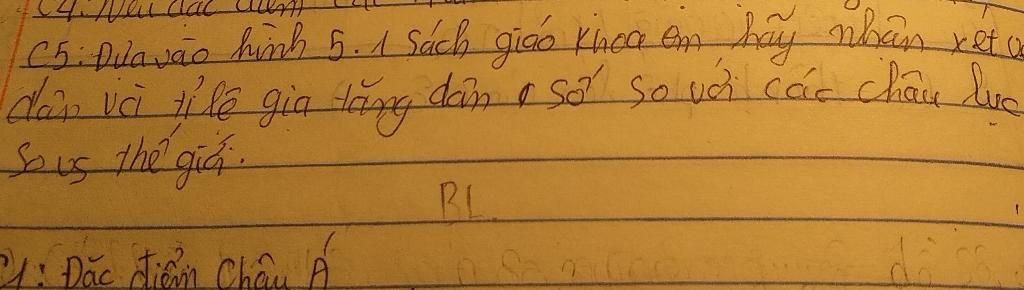 C4: Nêu đặc điểm
C5: Dựa vào hình 5.1 Sách giáo khoa em hãy nhận xét
dân và tỉ lệ gia tăng dân số so với các châu lục
so vs thế giới.
BL
C1: Đặc điểm Châu Á